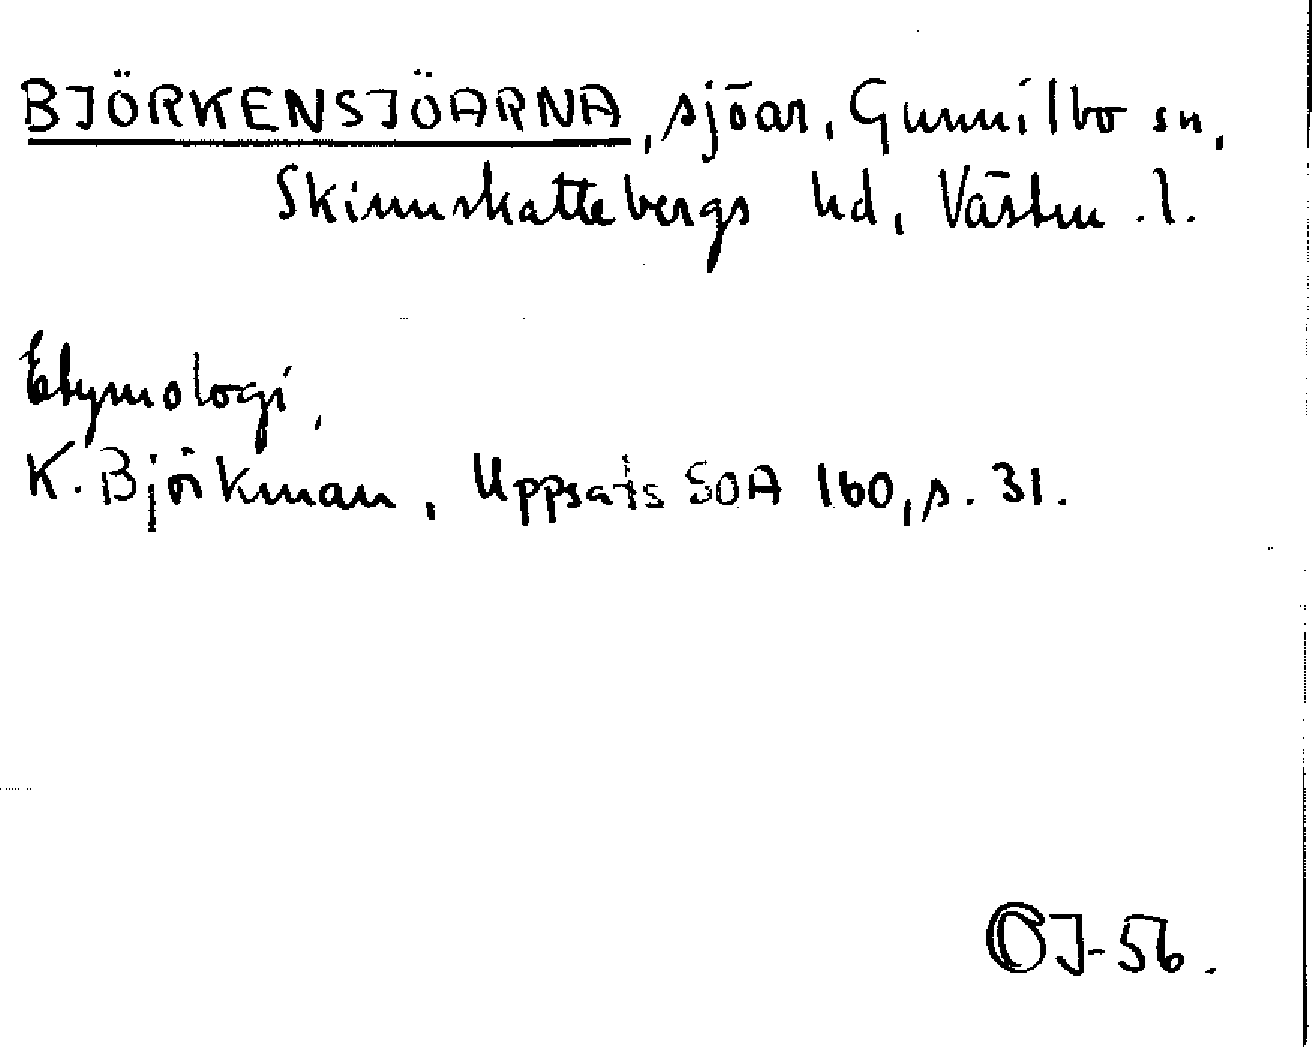 BJÖRKENSJÖARNA, sjöar, Gunnilbo sn,
Skinnskattebergs hd, Västm. l.
Etymologi,
K. Björkman, Uppsats SOA 160, s. 31.
OJ-56.